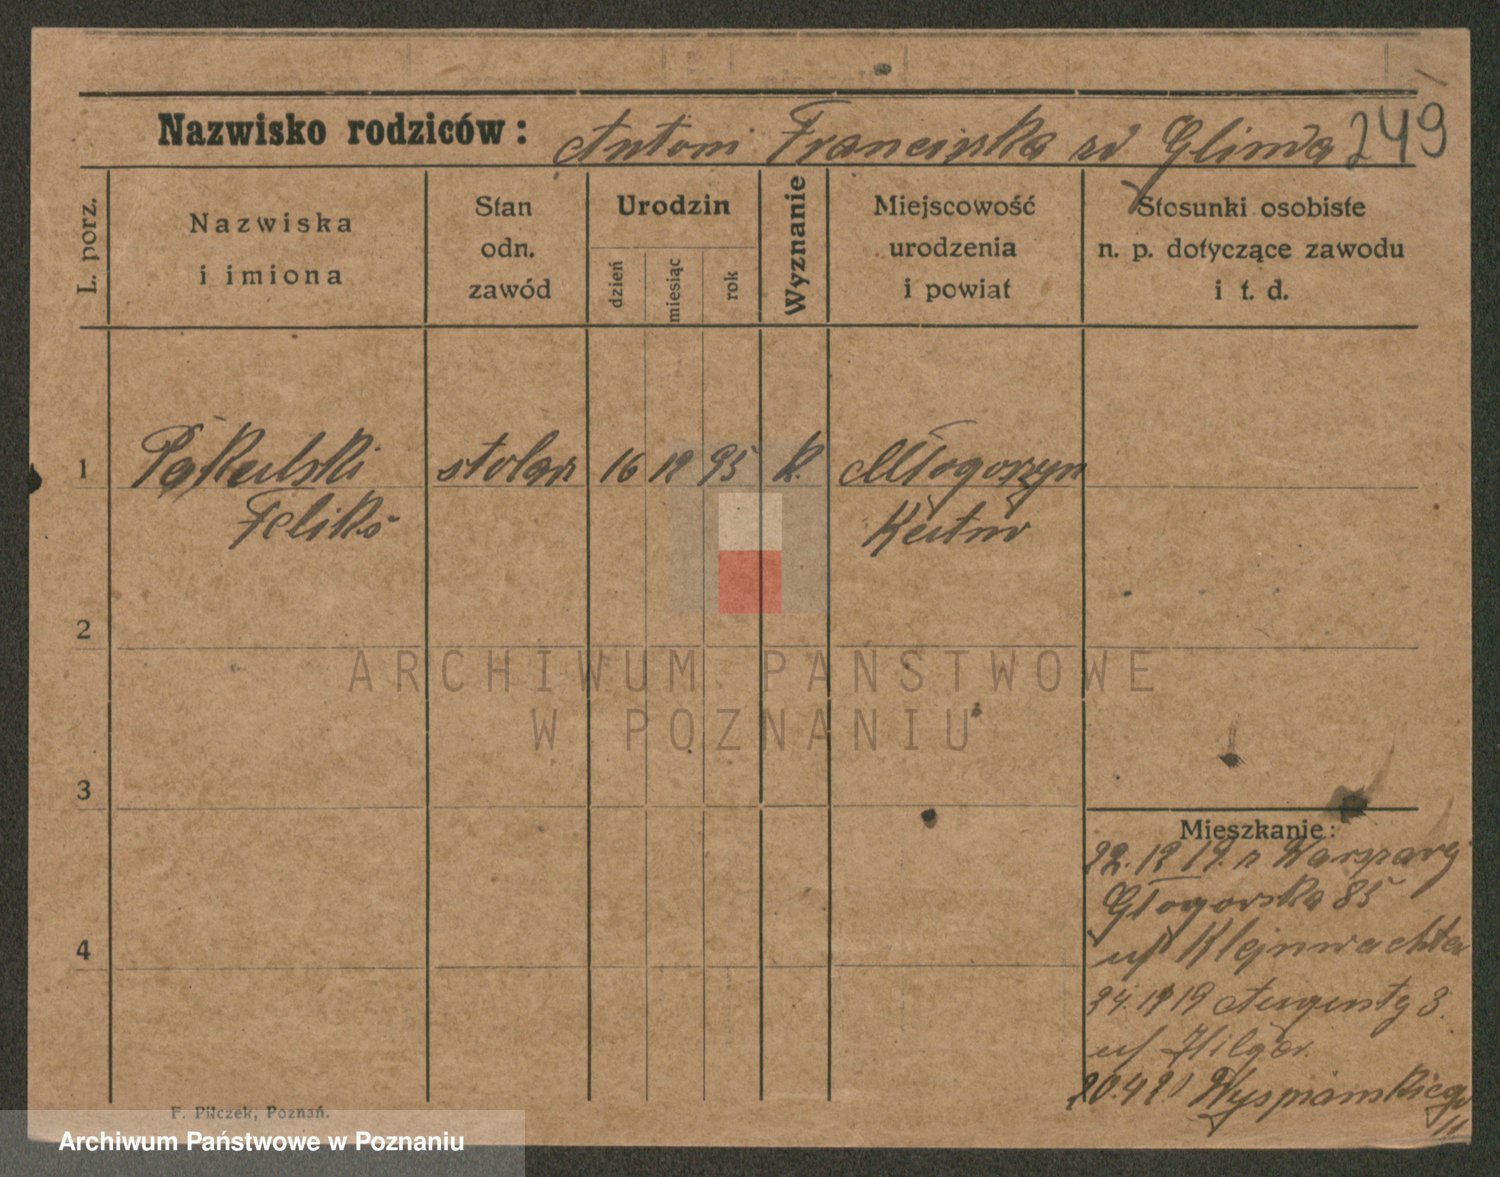 249
Nazwisko rodziców: Antoni Franciszka zd Glinda
L. porz.
Nazwiska
i imiona
Stan
odn.
zawód
Urodzin
dzień
miesiąc
rok
Wyznanie
Miejscowość
urodzenia
i powiat
Stosunki osobiste
n. p. dotyczące zawodu
i t. d.
1 Pakulski stolarz 16 12 95 k.
Feliks Kutno
2
3
4
Mieszkanie:
22.12 19. z Warszawy
Głogowska 85
u/ Klejnwachter
24.12 19 Augusty 3.
u/
20.4 21 Wyspiańskiego
11
F. Pilczek, Poznań.
ARCHIWUM PAŃSTWOWE
W POZNANIU
Archiwum Państwowe w Poznaniu